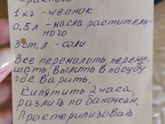 1 кг - чеснок
0,5 л - масла раститель-
ного
3 ст. л - соли
Все перемолоть, переме-
шать. Вылить в посуду
где варить.
Кипятить 2 часа,
разлить по баночкам,
Простерилизовав